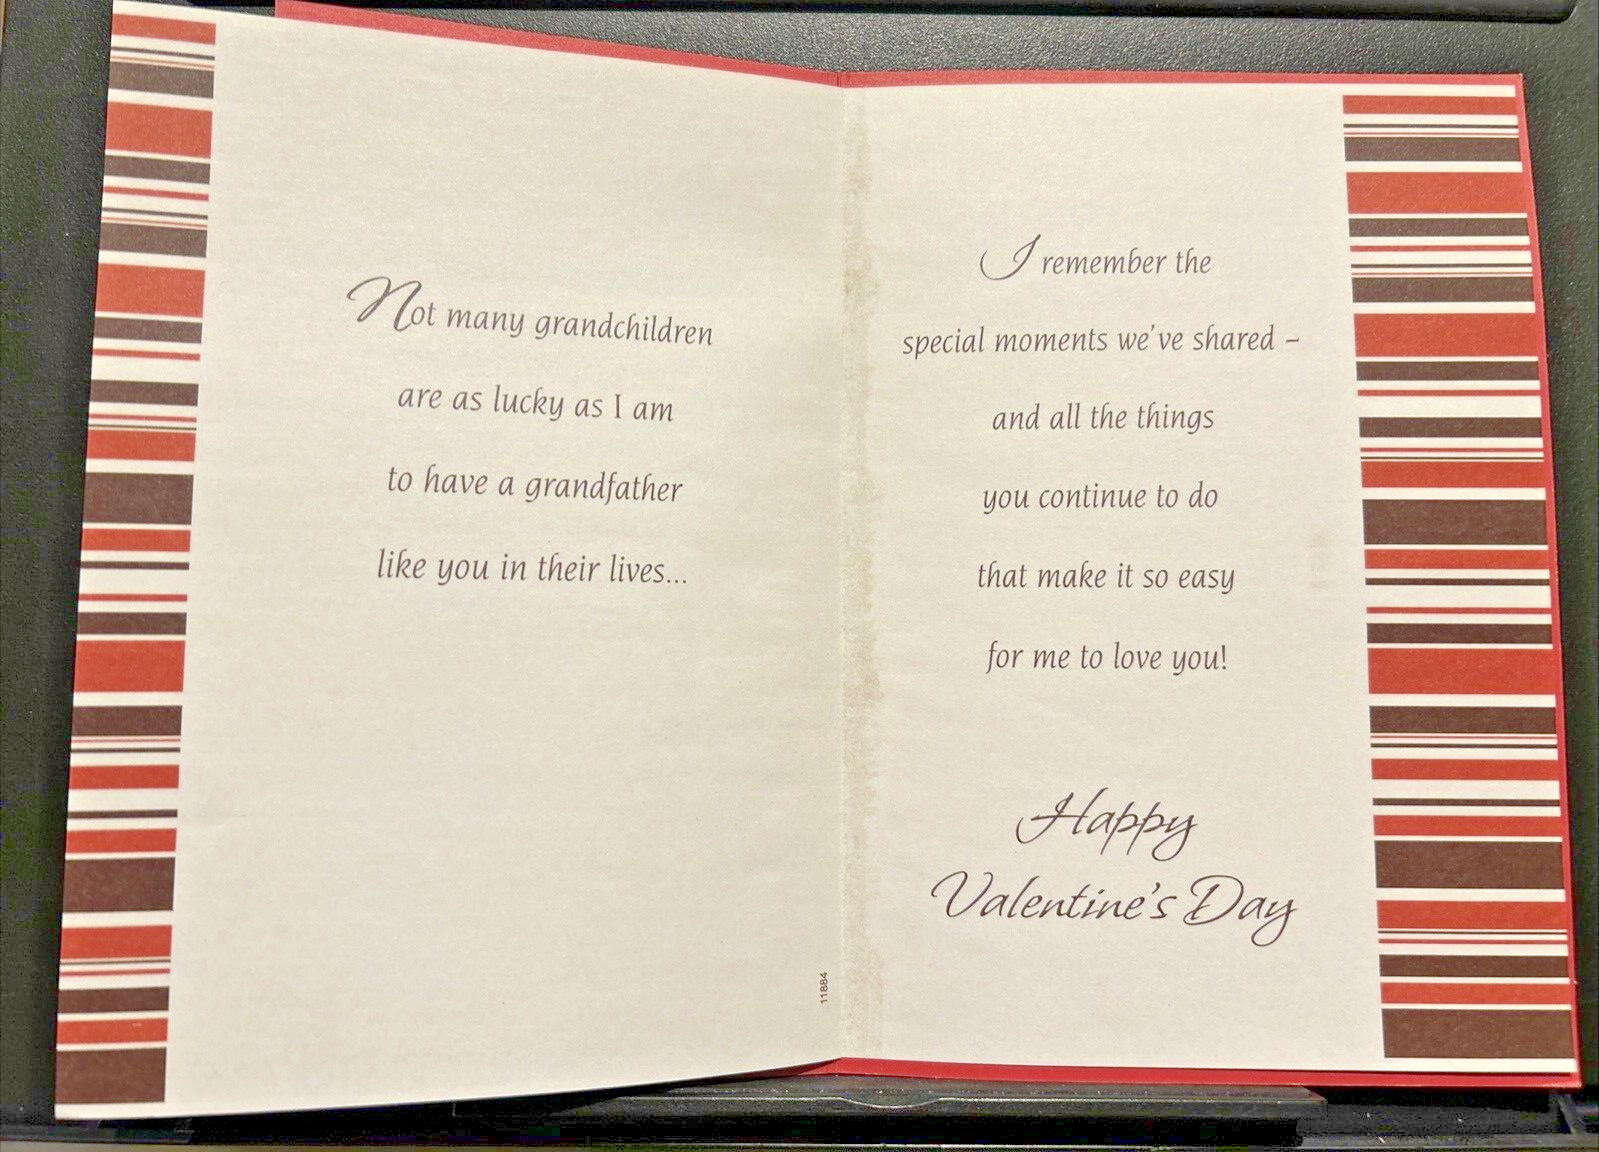 Not many grandchildren
are as lucky as I am
to have a grandfather
like you in their lives...
11884
I remember the
special moments we've shared –
and all the things
you continue to do
that make it so easy
for me to love you!
Happy
Valentine's Day